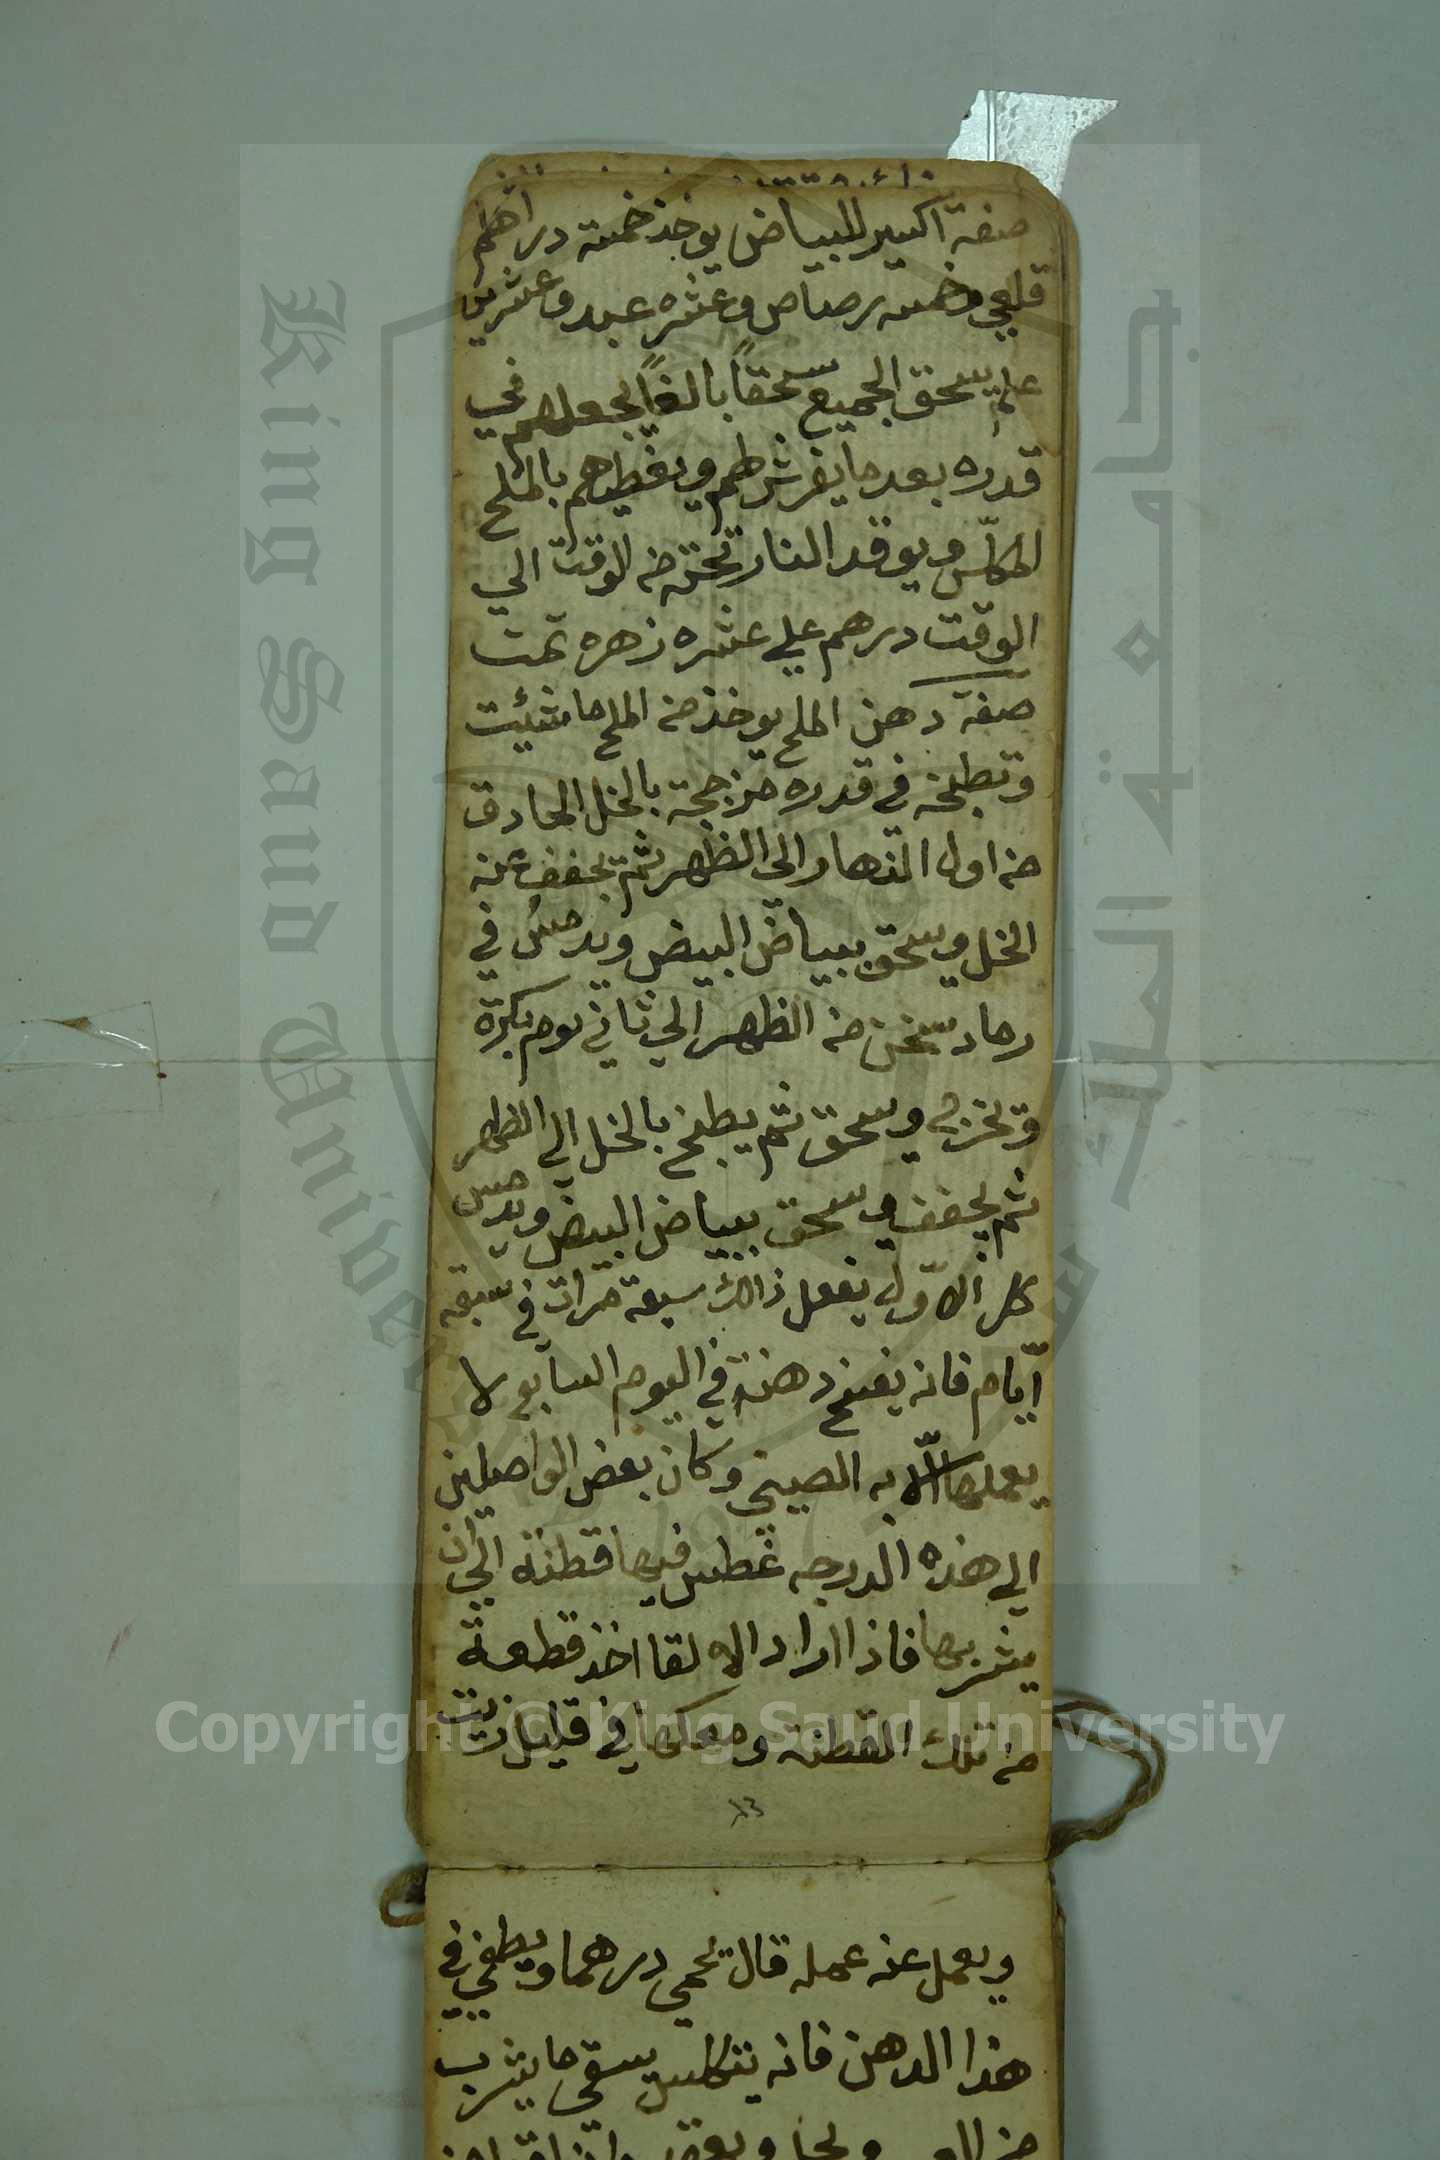 صفة اكسير للبياض يوخذ خمسة دراهم
قلعي وخمسه رصاص وعشره عبد وعشرين
علم يسحق الجميع سحقاً بالغاً يجعلهم في
قدره بعد ما يفرش لهم ويغطيهم بالملح
المكلّس ويوقد النار تحته من الوقت الي
الوقت درهم علي عشره زهره تمت
صفة دهن الملح يوخذ من الملح ما شيئت
وتطبخه في قدره مزججة بالخل الحادق
من اول النهار الى الظهر ثم تجفف عنه
الخل ويسحق ببياض البيض ويدمس في
رماد سخن من الظهر الي ثاني يوم بكرة
وتخرج ويسحق ثم يطبخ بالخل الي الظهر
ثم يجفف ويسحق ببياض البيض ويدمس
كل الاوّل يفعل ذالك سبعة مرات في سبعة
ايّام فانه يفتح دهنه في اليوم السابع لا
يعملها الّا به الصيني وكان بعض الواصيلين
الي هذه الدرجه غطس فيها قطنة الي ان
يشربها فاذا اراد الالقا اخذ قطعة
من تلك القطنة ومعكها في قليل زيت
١٣
ويعمل عنه عمله قال تحمي درهما ويطفي في
هذا الدهن فانه يتكلس يسقي ما يشرب
Copyright © King Saud University
King Saud University
جامعة الملك سعود
1957